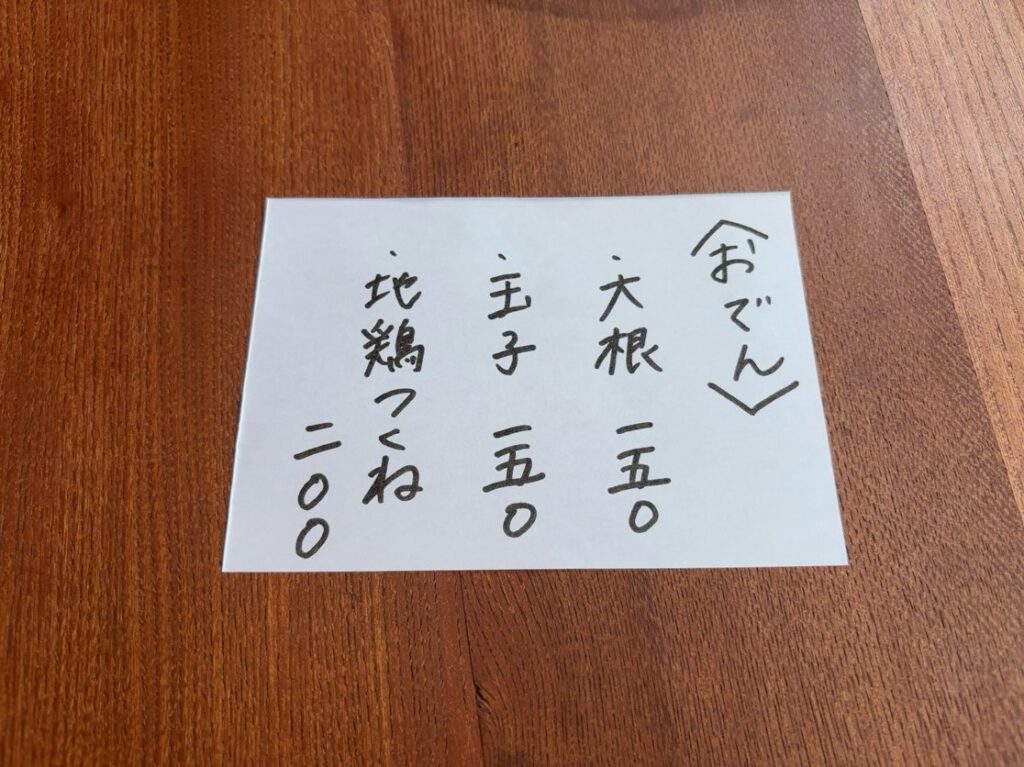 〈おでん〉
・大根 一五〇
・玉子 一五〇
・地鶏つくね
二〇〇